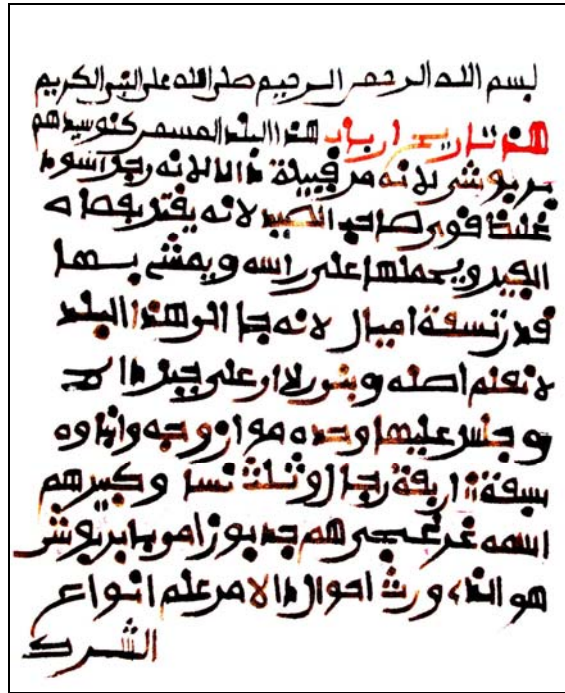 بسم الله الرحمن الرحيم صلى الله على النبي الكريم
هذا تاريخ ارباب هذا البلد المسمى كنو سيدهم
بربوشي لانه من قبيلة دالا لانه رجل اسود
غلظ قوي صاحب الصيد لانه يقتل بعصاه
الفيل ويحملها على راسه ويمشي بها
قدر تسعة اميال لانه جا الى هذا البلد
لا نعلم اصله وبنى على جبل دالا
وجلس عليها وحده وازوجه واولاده
سبعة اربعة رجال وثلث نسا وكبيرهم
اسمه غرغجي هم جد بربوشي
هو الذي ورث احوال دالا من علم انواع
الشرك